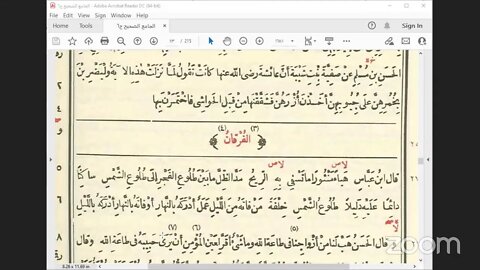 الجامع الصحيح ج٦ - Adobe Acrobat Reader DC (64-bit)
File Edit View Window Help
Home Tools الجامع الصحيح ج٦ × Sign In
الحسن بن مسلم عن صفية بنت شيبة أن عائشة رضى الله عنها كانت تقول لما نزلت هذه الآية وليضربن
بخمرهن على جيوبهن أخذن أزرهن فشققنها من قبل الحواشى فاختمرن بها
(٣) (٤)
﴿ الفرقان ﴾
٢٥
لاص لاص
قال ابن عباس هباء منثورا ما تسفى به الريح مد الظل ما بين طلوع الفجر إلى طلوع الشمس ساكنا
٢٦
دائما عليه دليلا طلوع الشمس خلفة من فاته من الليل عمل أدركه بالنهار أو فاته بالنهار أدركه بالليل
(٥) (٦) (٧)
وقال الحسن هب لنا من أزواجنا فى طاعة الله وما شئ أقر لعين المؤمن أن يرى حبيبه فى طاعة الله وقال
٢
٤
و
٥
٦
٨
8.26 x 11.69 in
zoom